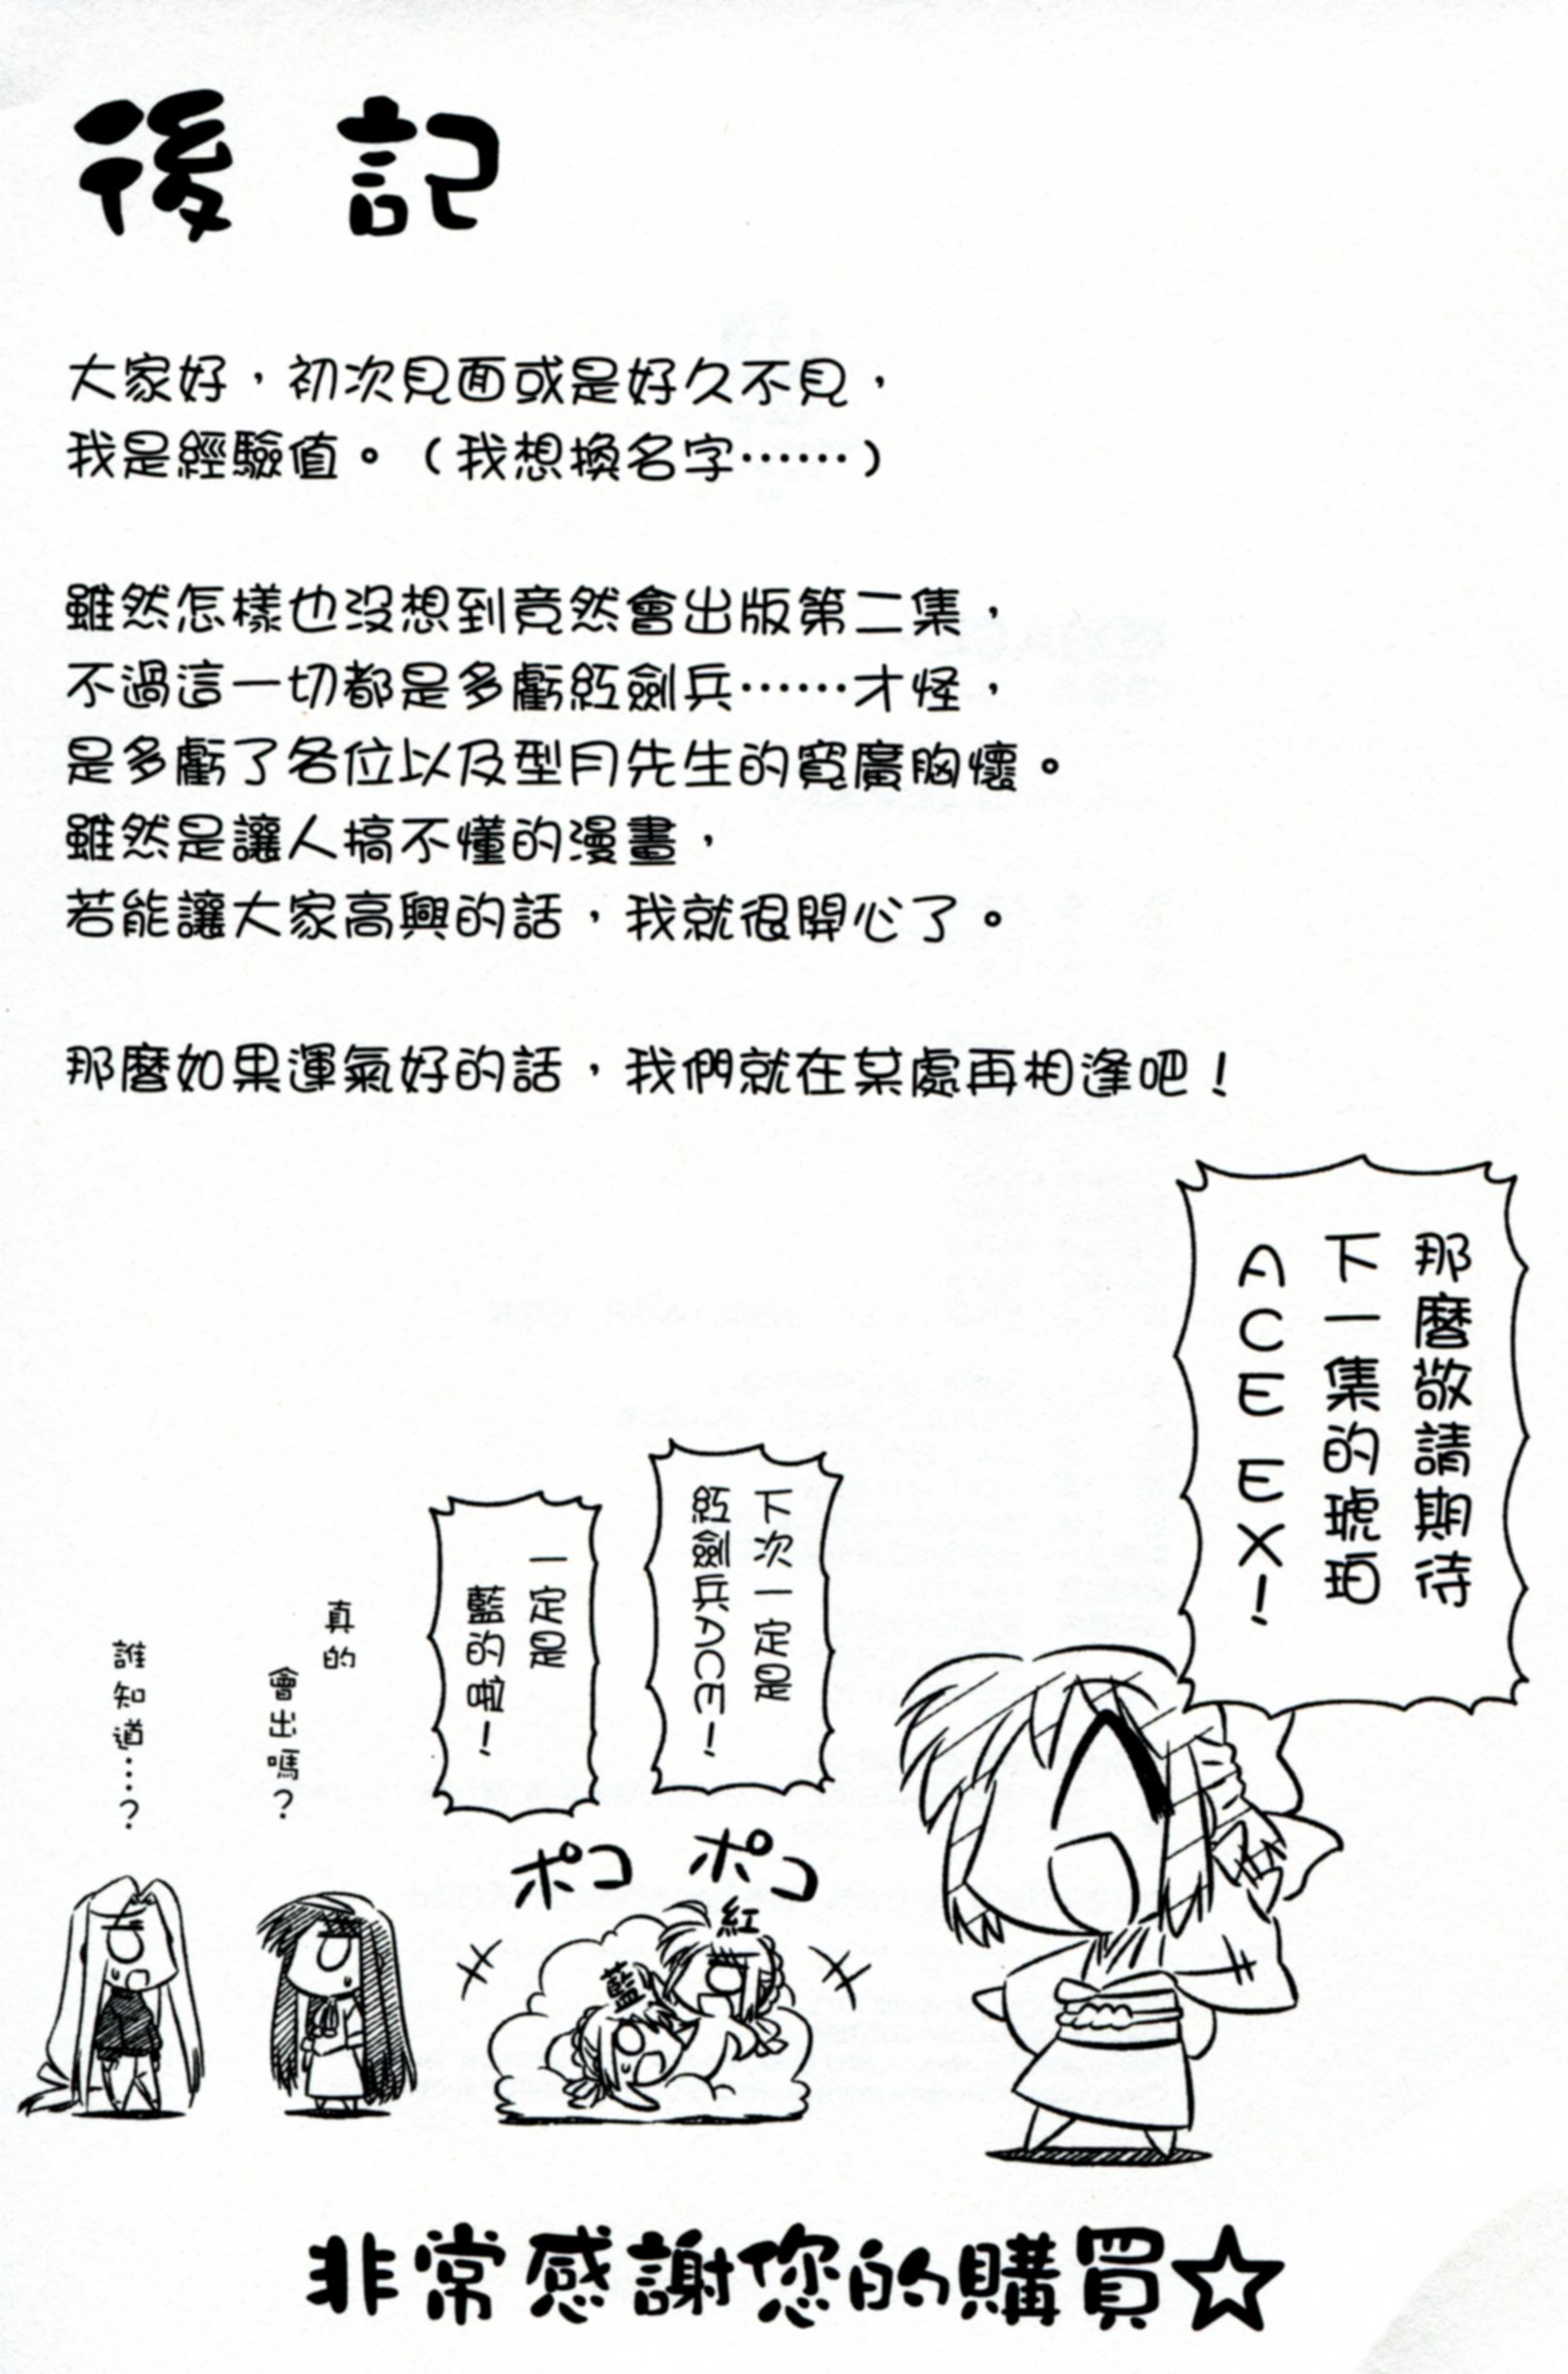 後記
大家好，初次見面或是好久不見，
我是經驗值。（我想換名字⋯⋯）
雖然怎樣也沒想到竟然會出版第二集，
不過這一切都是多虧紅劍兵⋯⋯才怪，
是多虧了各位以及型月先生的寬廣胸懷。
雖然是讓人搞不懂的漫畫，
若能讓大家高興的話，我就很開心了。
那麼如果運氣好的話，我們就在某處再相逢吧！
那麼敬請期待
下一集的琥珀
ACE EX！
下次一定是
紅劍兵ACE！
一定是
藍的啦！
真的
會出嗎？
誰知道⋯？
ポコ
ポコ
紅
藍
非常感謝您的購買☆